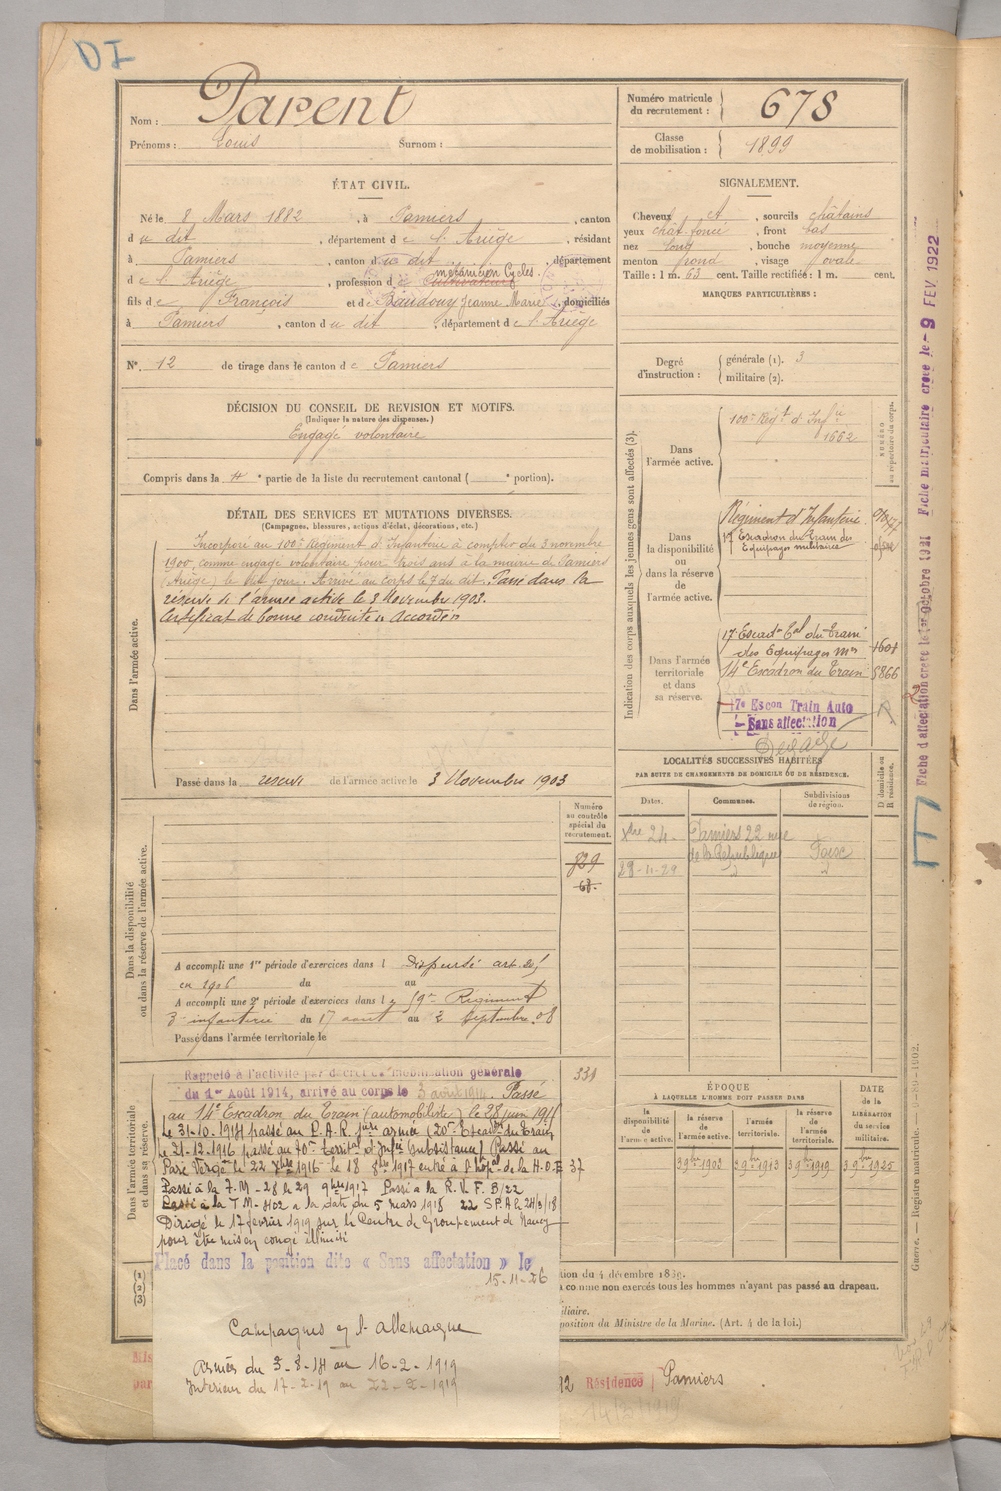 Nom : Parent
Prénoms : Louis Surnom :
ÉTAT CIVIL.
Né le 8 Mars 1882, à Pamiers, canton
du dit, département de l'Ariège, résidant
à Pamiers, canton du dit, département
mécanicien Cycles.
de l'Ariège, profession de Cultivateur
fils de François et de Baudouy Jeanne Marie, domiciliés
à Pamiers, canton du dit, département de l'Ariège
N°. 12 de tirage dans le canton de Pamiers
DÉCISION DU CONSEIL DE REVISION ET MOTIFS.
(Indiquer la nature des dispenses.)
Engagé volontaire
Compris dans la 4e partie de la liste du recrutement cantonal ( e portion).
DÉTAIL DES SERVICES ET MUTATIONS DIVERSES.
(Campagnes, blessures, actions d'éclat, décorations, etc.)
Dans l'armée active.
Incorporé au 100e Régiment d'Infanterie à compter du 3 novembre
1900, comme engagé volontaire pour trois ans à la mairie de Pamiers
(Ariège) le dit jour. Arrivé au corps le 7 du dit. Passé dans la
réserve de l'armée active le 3 Novembre 1903.
Certificat de bonne conduite "Accordé"
Passé dans la réserve de l'armée active le 3 Novembre 1903
Dans la disponibilité
ou dans la réserve de l'armée active.
Numéro
au contrôle
spécial du
recrutement.
829
63
A accompli une 1re période d'exercices dans l Dispensé art. 20
en 1906 du au
A accompli une 2e période d'exercices dans le 59e Régiment
d'infanterie du 17 août au 2 septembre 08
Passé dans l'armée territoriale le
Dans l'armée territoriale
et dans sa réserve.
331
Rappelé à l'activité par décret de mobilisation générale
du 1er Août 1914, arrivé au corps le 3 août 1914. Passé
au 14e Escadron du Train (automobiliste) le 28 juin 191
Le 31-10-1914 passé au P.A.R. 1ère armée (20e Escadon du Train
le 21-12-1916 passé au 70e territal d'Infie (subsistance) Passé au
Parc Vergé le 22 1916 - le 18 8bre 1917 entré à l'hôpal de la H.O.E 37
Passé à la T.M - 28 le 29 9bre 1917 Passé à la R.V.F. B/22
Passé à la TM - 1102 à la date du 5 mars 1918 22 S.P.A le 24/3/18
Dirigé le 17 février 1919 sur le Centre de Groupement de Nancy
pour être mis en congé illimité
Placé dans la position dite « Sans affectation » le
15-11-26
Campagnes c/ l'allemagne
Armées du 3-8-14 au 16-2-1919
Intérieur du 17-2-19 au 22-2-1919
(1)
(2)
(3)
tion du 4 décembre 1889.
à comme non exercés tous les hommes n'ayant pas passé au drapeau.
iliaire.
position du Ministre de la Marine. (Art. 4 de la loi.)
Résidence Pamiers
14/3/1919
Numéro matricule
du recrutement : 678
Classe
de mobilisation : 1899
SIGNALEMENT.
Cheveux et, sourcils châtains
yeux chat foncé, front bas
nez long, bouche moyenne
menton rond, visage ovale
Taille : 1 m. 63 cent. Taille rectifiée : 1 m. cent.
MARQUES PARTICULIÈRES :
Degré
d'instruction :
générale (1). 3
militaire (2).
Indication des corps auxquels les jeunes gens sont affectés (3).
NUMÉRO
au répertoire du corps.
Dans
l'armée active.
100e Régt d'Infie
1662
Dans
la disponibilité
ou dans la réserve
de
l'armée active.
Régiment d'Infanterie
17 Escadron du Train des
Equipages militaires
Dans l'armée
territoriale
et dans
sa réserve.
17 Escadn Tal du Train
des Equipages Mres 1601
14e Escadron du Train 5866
17e Escon Train Auto
Sans affectation
LOCALITÉS SUCCESSIVES HABITÉES
PAR SUITE DE CHANGEMENTS DE DOMICILE OU DE RÉSIDENCE.
Dates. Communes. Subdivisions
de région.
D domicile ou
R résidence.
Xbre 24. Pamiers 22 rue
de la République Foix
28-11-29 " "
ÉPOQUE
À LAQUELLE L'HOMME DOIT PASSER DANS
la
disponibilité
de
l'armée active.
la réserve
de
l'armée active.
l'armée
territoriale.
la réserve
de
l'armée
territoriale.
DATE
de la
LIBÉRATION
du service
militaire.
3 9bre 1903 3 9bre 1913 3 9bre 1919 3 9bre 1925
Fiche d'affectation créée le 1er octobre 1921 Fiche matriculaire créée le - 9 FEV 1922
Registre matricule.